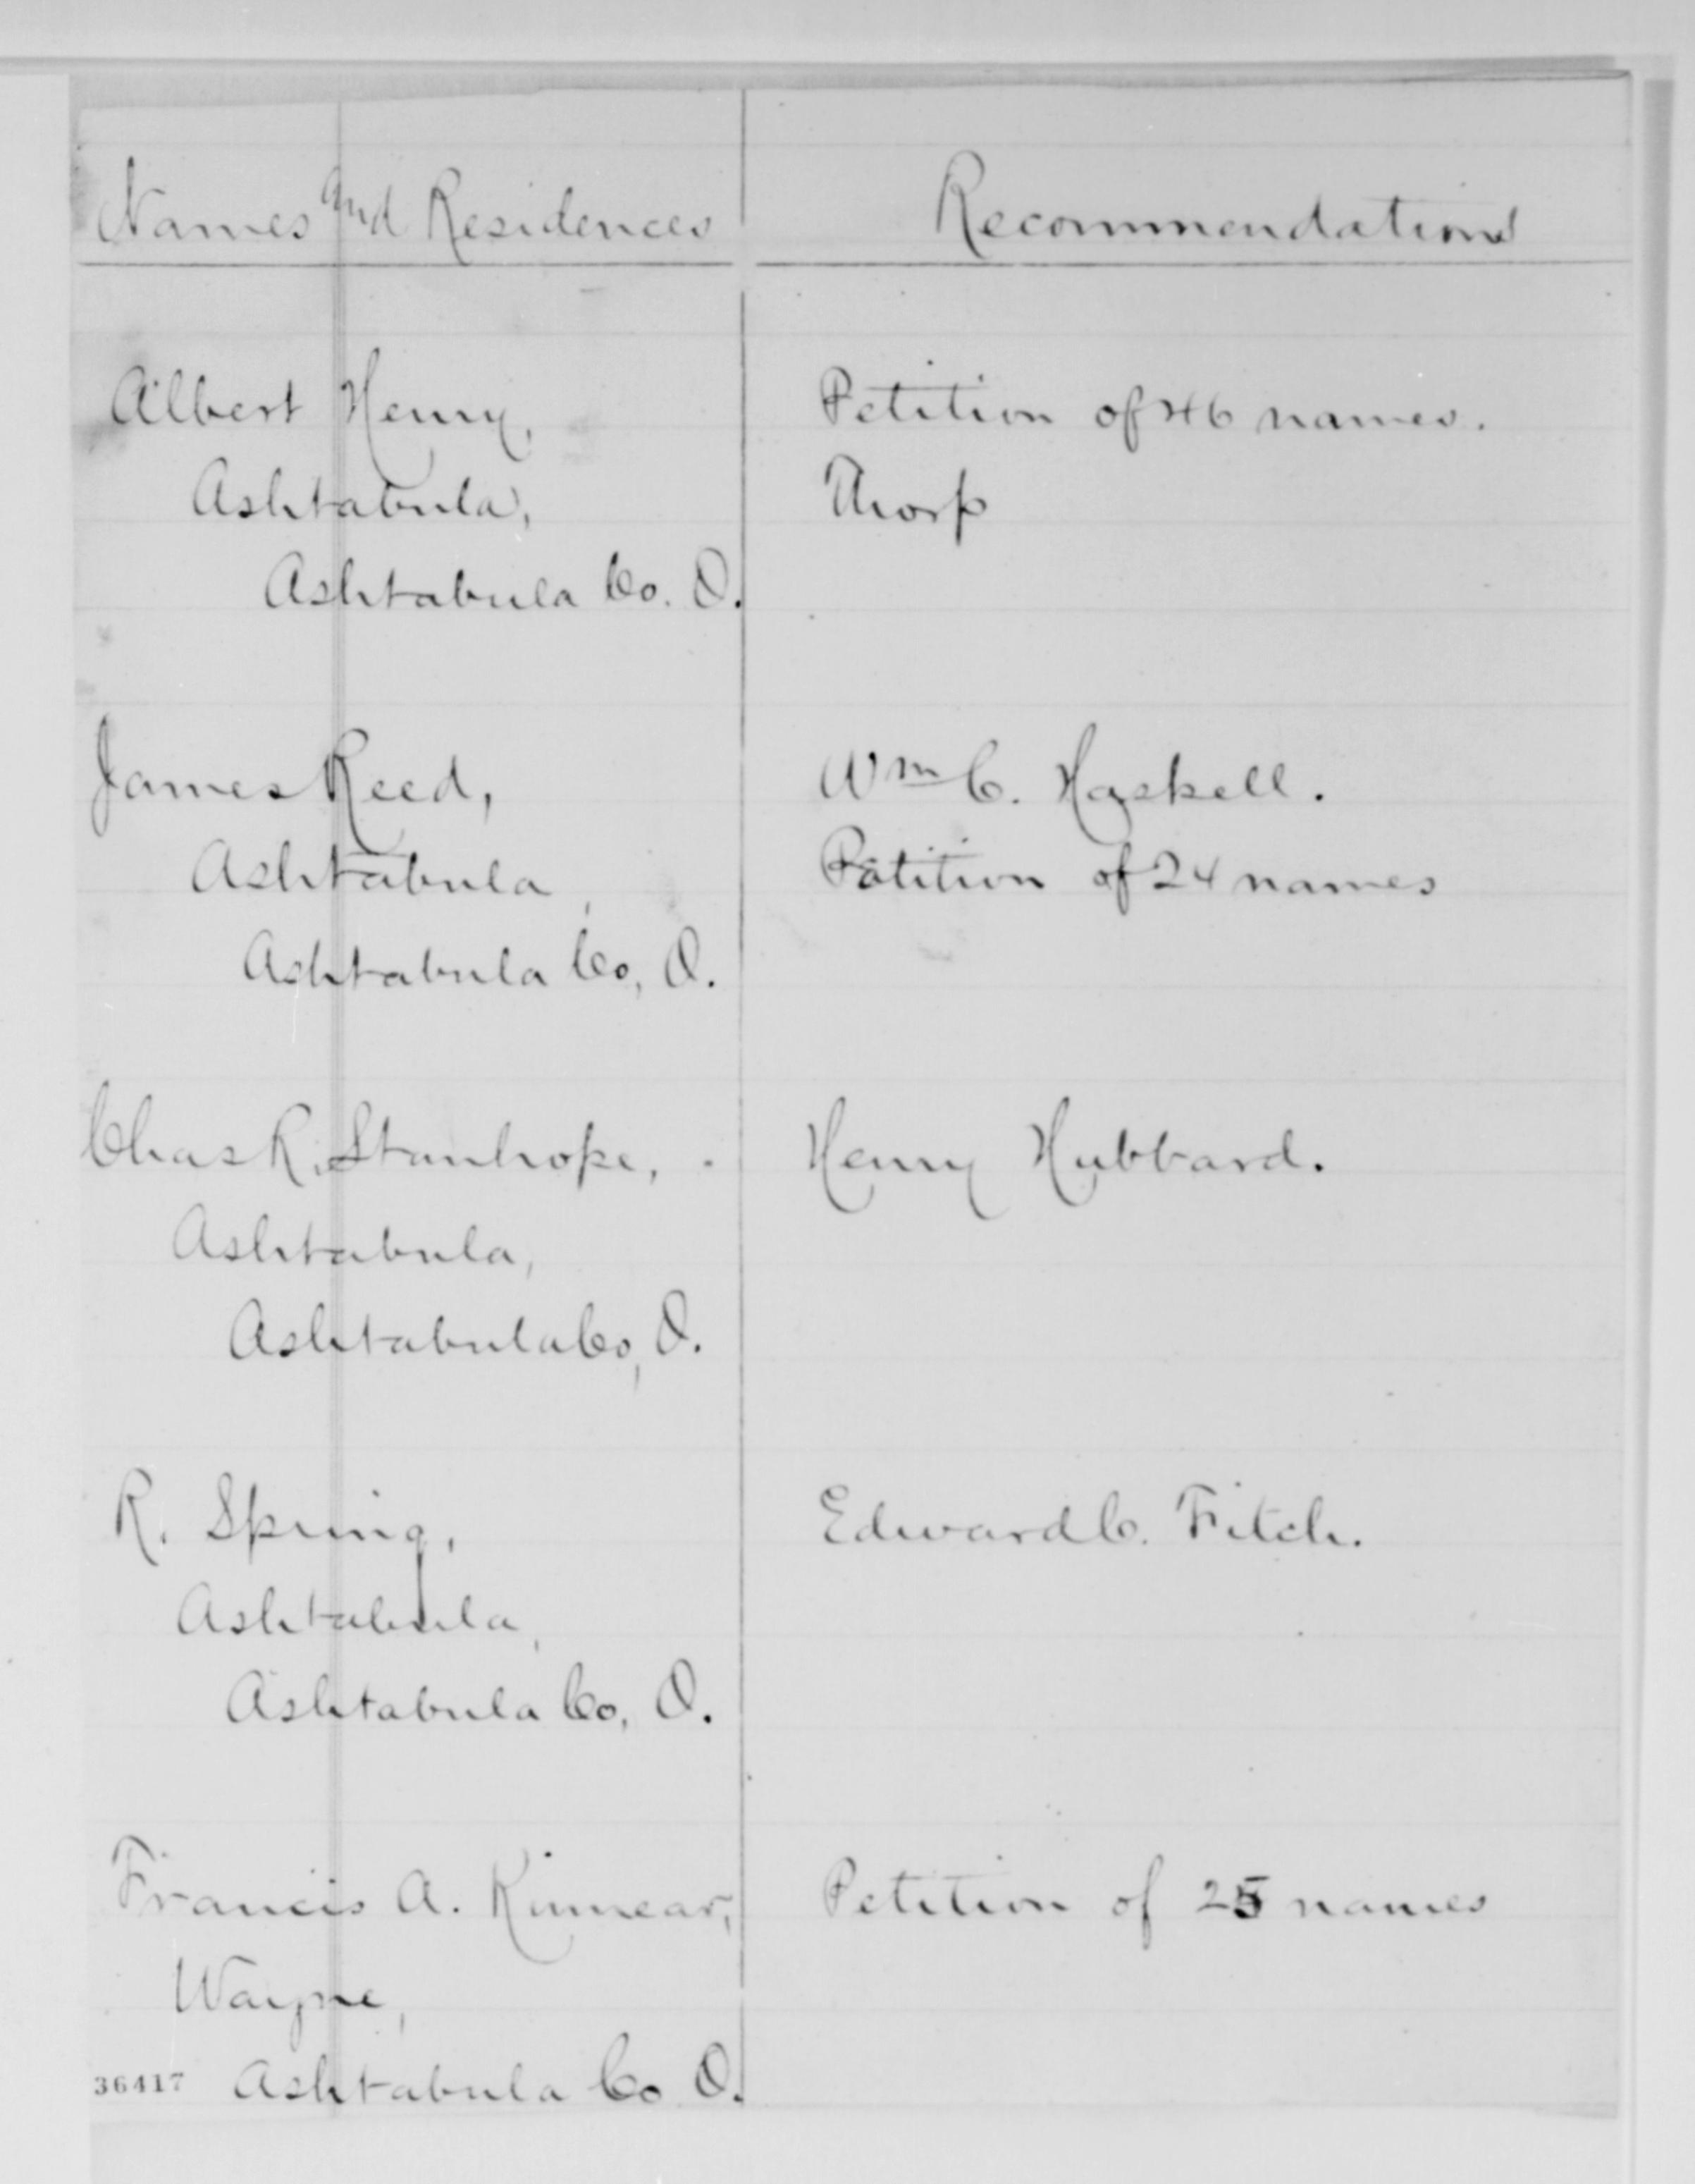 Names and Residences
Recommendations
Albert Henry,
Ashtabula,
Ashtabula Co. O.
Petition of 46 names.
Thorp
James Reed,
Ashtabula,
Ashtabula Co, O.
Wm C. Haskell.
Petition of 24 names
Chas R. Stanhope,
Ashtabula,
Ashtabula Co, O.
Henry Hubbard.
R. Spring,
Ashtabula,
Ashtabula Co, O.
Edward C. Fitch.
Francis A. Kinnear,
Wayne,
Ashtabula Co O.
Petition of 25 names
36417